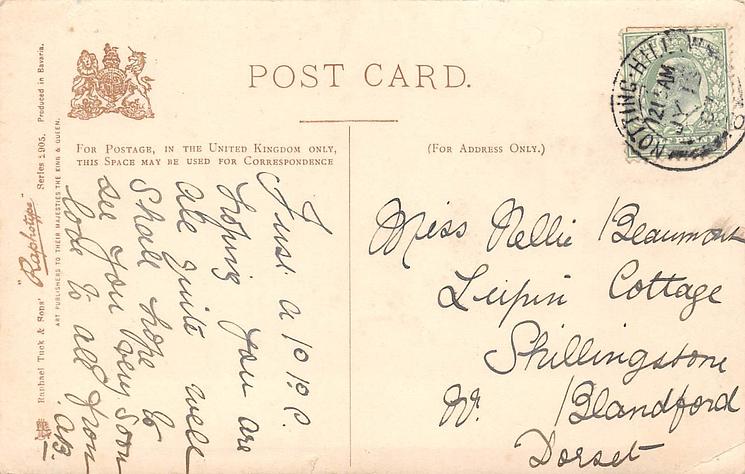 POST CARD.
FOR POSTAGE, IN THE UNITED KINGDOM ONLY,
THIS SPACE MAY BE USED FOR CORRESPONDENCE
(FOR ADDRESS ONLY.)
Raphael Tuck & Sons' "Raphotype" Series 2905. Produced in Bavaria.
ART PUBLISHERS TO THEIR MAJESTIES THE KING & QUEEN.
NOTTING-HILL
12 15 AM
JY
Just a P.P.C.
hoping you are
all quite well
Shall hope to
see you very soon
love to all from
AB.
Miss Nellie Beaumont
Cottage
Shillingstone
Nr. Blandford
Dorset